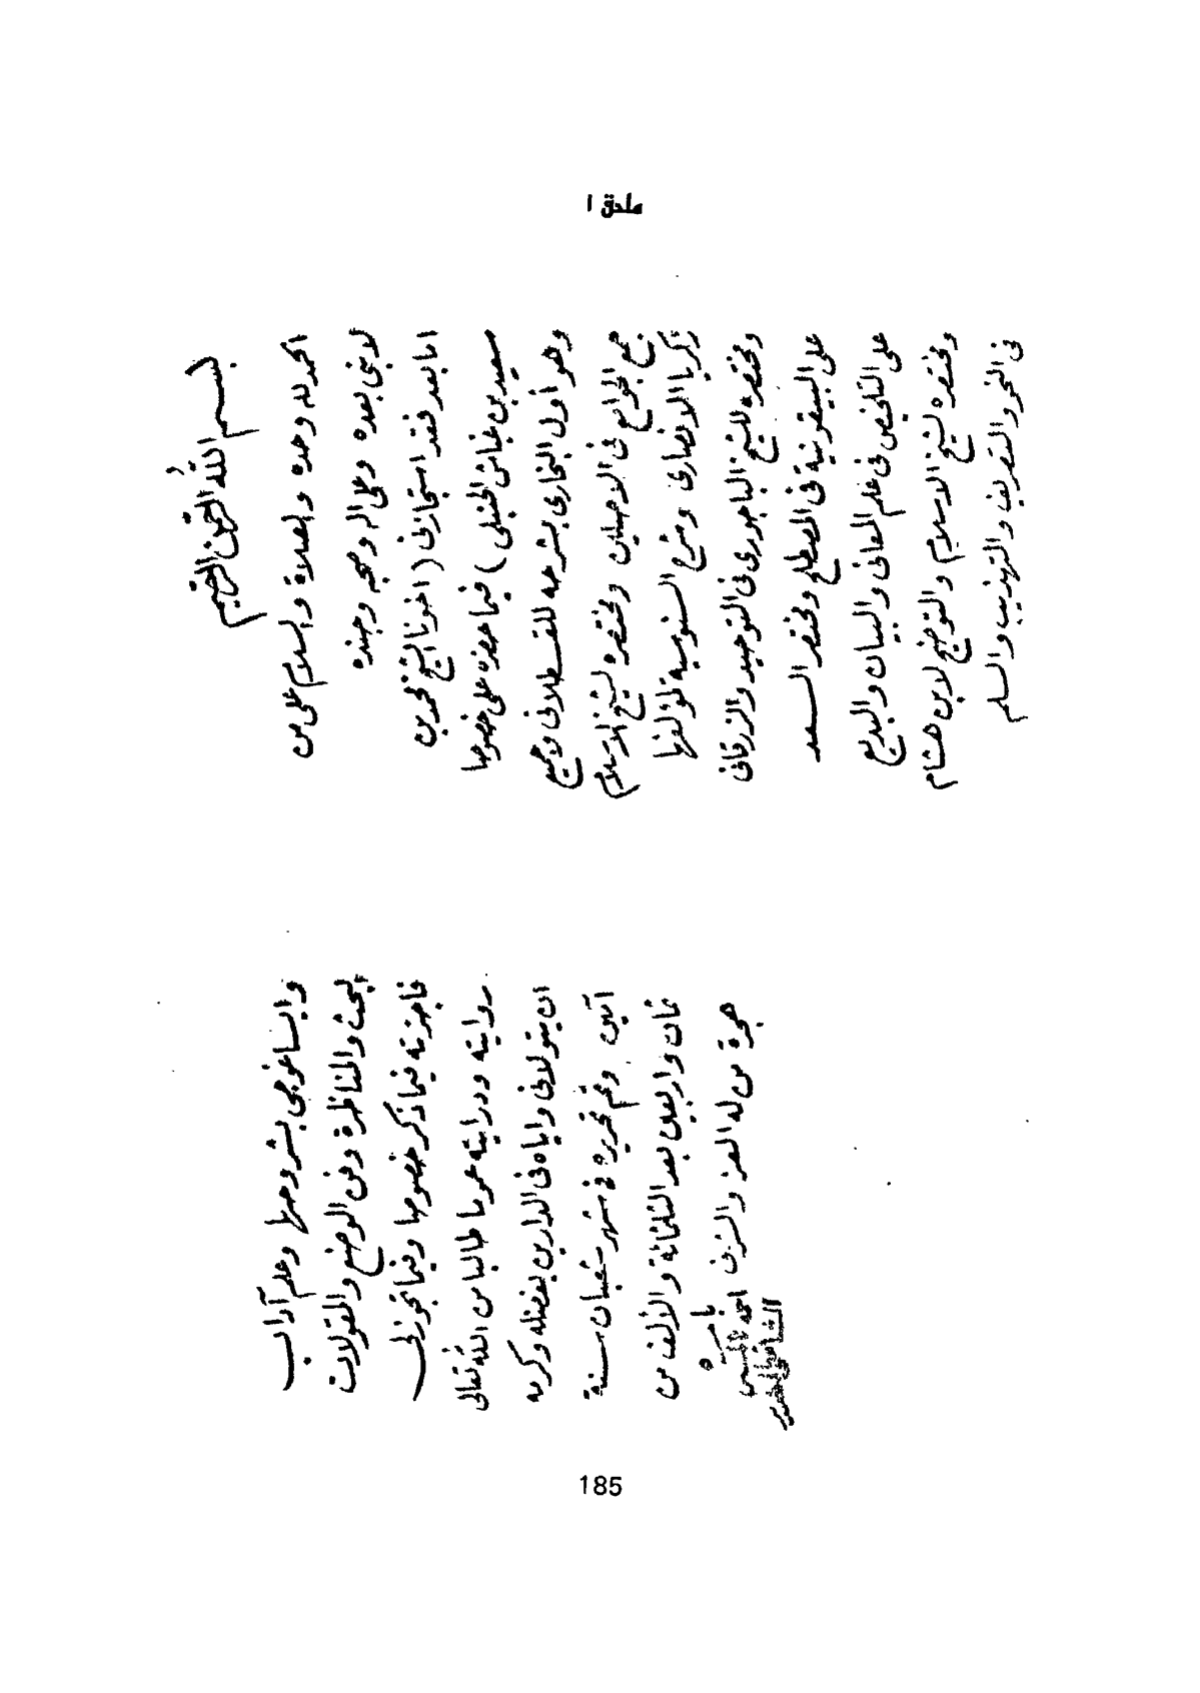 ملحق ١
بسم الله الرحمن الرحيم
الحمد لله وحده والصلاة والسلام على من
لا نبى بعده وعلى اله وصحبه وجنده
اما بعد فقد استجازنى (اخونا الشيخ محمد بن
سعيد بن غباش الحنبلى) فيما حضره على خصوصا
وهو أول البخارى بشرحه للقسطلانى وجميع
جمع الجوامع فى الاصلين ومختصره لشيخ الاسلام
زكريا الانصارى وشرح السنوسية لمؤلفها
ومختصره للشيخ الباجورى فى التوحيد والزرقانى
على البيقونية فى المصطلح ومختصر السعد
على التلخيص فى علم المعانى والبيان والبديع
ومختصره لشيخ الاسلام والتوضيح لابن هشام
فى النحو والتصريف والتهذيب والسلم
وايساغوجى بشروحها وعلم آداب
البحث والمناظرة وفن الوضع والمقولات
فاجزته فيما ذكر خصوصا وفيما تجوز لى
روايته ودرايته عموما طالبا من الله تعالى
ان يتولانى واياه فى الدارين بفضله وكرمه
آمين وتم تحريره فى شهر شعبان سنة
ثمان واربعين بعد الثلثمائة والألف من
هجرة من له العز والشرف
احمد
الشافعى
185